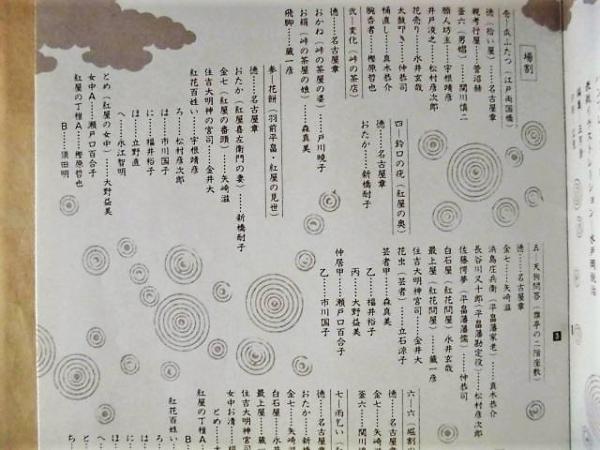 場割
壱—瓜ふたつ(江戸両国橋)
徳(拾い屋)……名古屋章
親孝行屋……菅沼赫
釜六(男娼)……関川慎二
願人坊主……宇根靖彦
井戸浚之……松村彦次郎
花売り……水井玄哉
太鼓叩き……仲恭司
桶直し……真木恭介
腕香者……樫原哲也
弐—変化(峠の茶店)
徳……名古屋章
おかね(峠の茶屋の妻)……戸川暁子
お絹(峠の茶屋の娘)……森真美
飛脚……蔵一彦
参—花餅(羽前平畠・紅屋の見世)
徳……名古屋章
おたか(紅屋喜左衛門の妻)……新橋耐子
金七(紅屋の番頭)……矢崎滋
住吉大明神の宮司……金井大
紅花百姓い……宇根靖彦
ろ……松村彦次郎
は……市川国子
に……福井裕子
ほ……立野直
へ……水江智明
とめ(紅屋の女中)……大野益美
女中A……瀬戸口百合子
紅屋の丁稚A……樫原哲也
B……須田明
四—鈴口の花(紅屋の奥)
徳……名古屋章
おたか……新橋耐子
徳……名古屋章
金七……矢崎滋
浜島庄兵衛(平畠藩家老)……真木恭介
長谷川又十郎(平畠藩勘定役)……松村彦次郎
佐藤愕夢(平畠藩藩儒)……仲恭司
白石屋(紅花問屋)……水井玄哉
最上屋(紅花問屋)……蔵一彦
住吉大明神宮司……金井大
花虫(芸者)……立石涼子
芸者甲……森真美
乙……福井裕子
丙……大野益美
仲居甲……瀬戸口百合子
乙……市川国子
3
六—六(堀割
徳……名古屋章
金七……矢崎滋
釜六……関川
七—雨乞い(
徳……名古屋
おたか……新
金七……矢崎
白石屋……水
最上屋……蔵
住吉大明神宮司
女中お清……
とめ……
紅屋の丁稚A
B
紅花百姓い…
ろ…
は…
に…
ほ…
へ…
と…
ち…